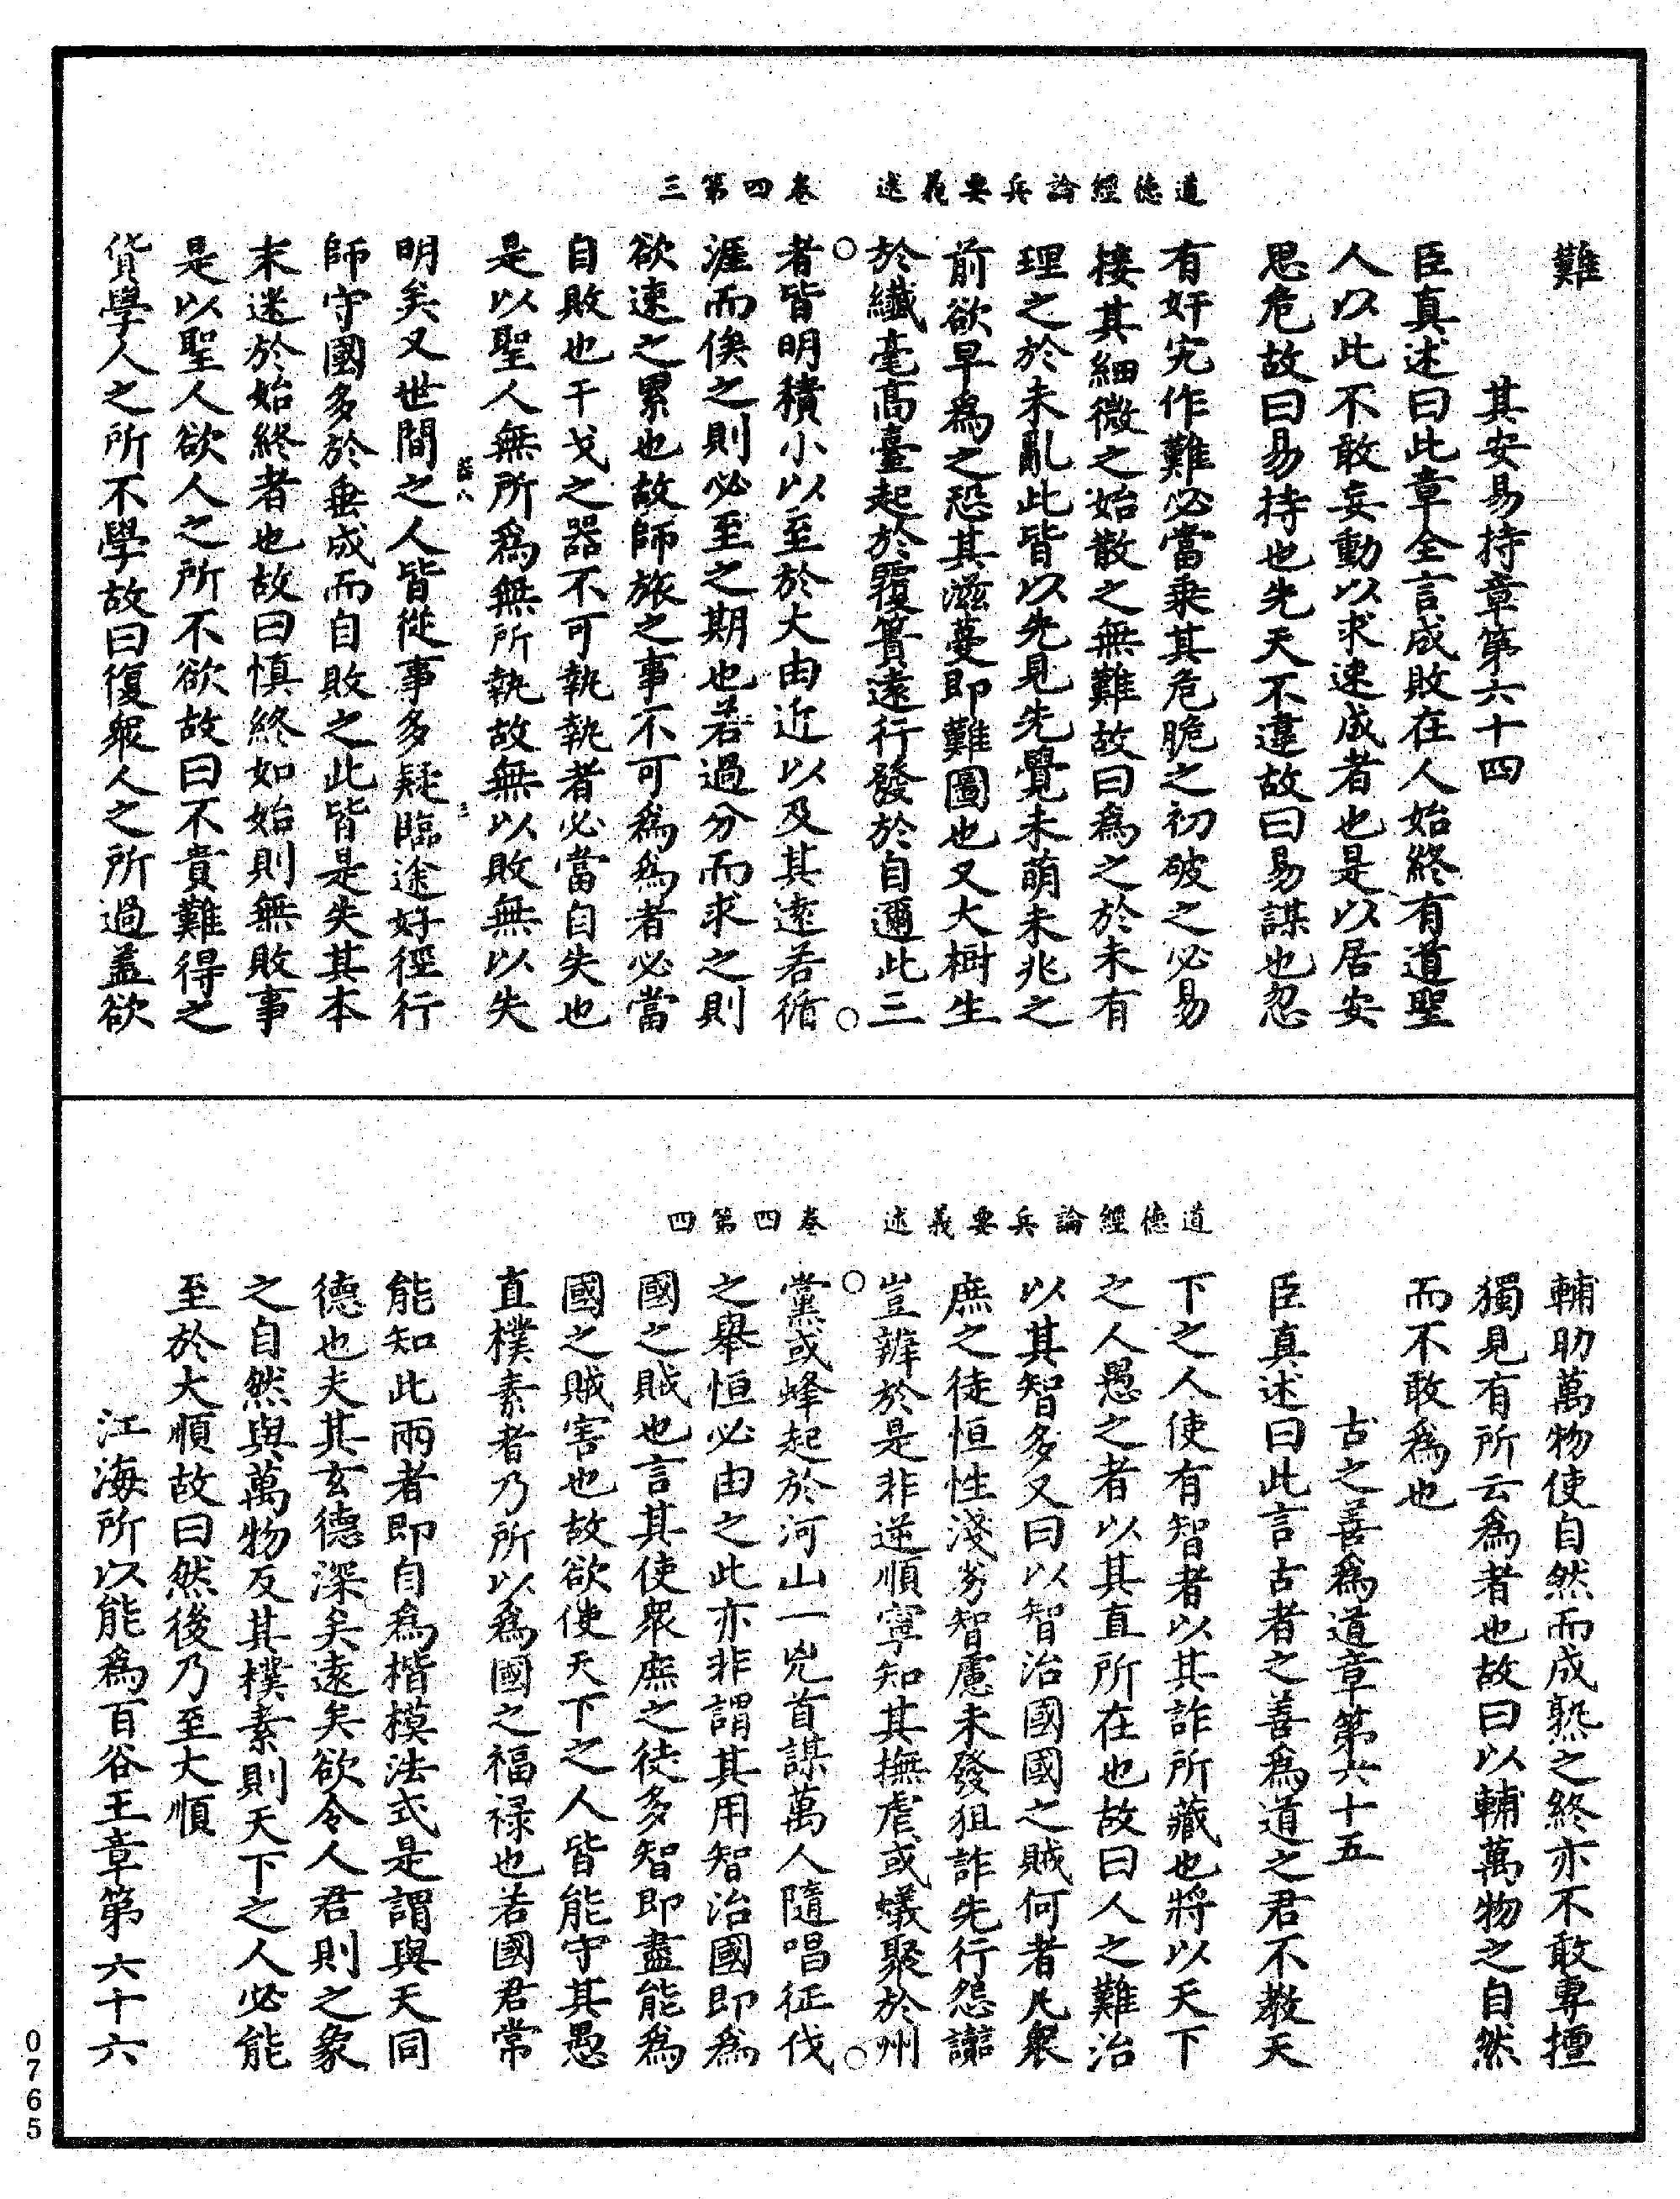 道德經論兵要義述　卷四第三
難
其安易持章第六十四
臣真述曰此章全言成敗在人始終有道聖
人以此不敢妄動以求速成者也是以居安
思危故曰易持也先天不違故曰易謀也忽
有奸宄作難必當乗其危脆之初破之必易
接其細微之始散之無難故曰爲之於未有
理之於未亂此皆以先見先覺未萌未兆之
前欲早爲之恐其滋蔓即難圖也又大樹生
於纖毫高臺起於覆簣遠行發於自邇此三
者皆明積小以至於大由近以及其遠若循
涯而俟之則必至之期也若過分而求之則
欲速之累也故師旅之事不可爲爲者必當
自敗也干戈之器不可執執者必當自失也
是以聖人無所爲無所執故無以敗無以失
明矣又世間之人皆從事多疑臨途好徑行
師守國多於垂成而自敗之此皆是失其本
末迷於始終者也故曰慎終如始則無敗事
是以聖人欲人之所不欲故曰不貴難得之
貨學人之所不學故曰復衆人之所過蓋欲
道德經論兵要義述　卷四第四
輔助萬物使自然而成熟之終亦不敢專擅
獨見有所云爲者也故曰以輔萬物之自然
而不敢爲也
古之善爲道章第六十五
臣真述曰此言古者之善爲道之君不教天
下之人使有智者以其詐所藏也將以天下
之人愚之者以其直所在也故曰人之難治
以其智多又曰以智治國國之賊何者凡衆
庶之徒恒性淺劣智慮未發狙詐先行怨讟
豈辨於是非逆順寧知其撫虐或蟻聚於州
黨或蜂起於河山一兇首謀萬人隨唱征伐
之舉恒必由之此亦非謂其用智治國即爲
國之賊也言其使衆庶之徒多智即盡能爲
國之賊害也故欲使天下之人皆能守其愚
直樸素者乃所以爲國之福禄也若國君常
能知此兩者即自爲楷模法式是謂與天同
德也夫其玄德深矣遠矣欲令人君則之象
之自然與萬物反其樸素則天下之人必能
至於大順故曰然後乃至大順
江海所以能爲百谷王章第六十六
0765